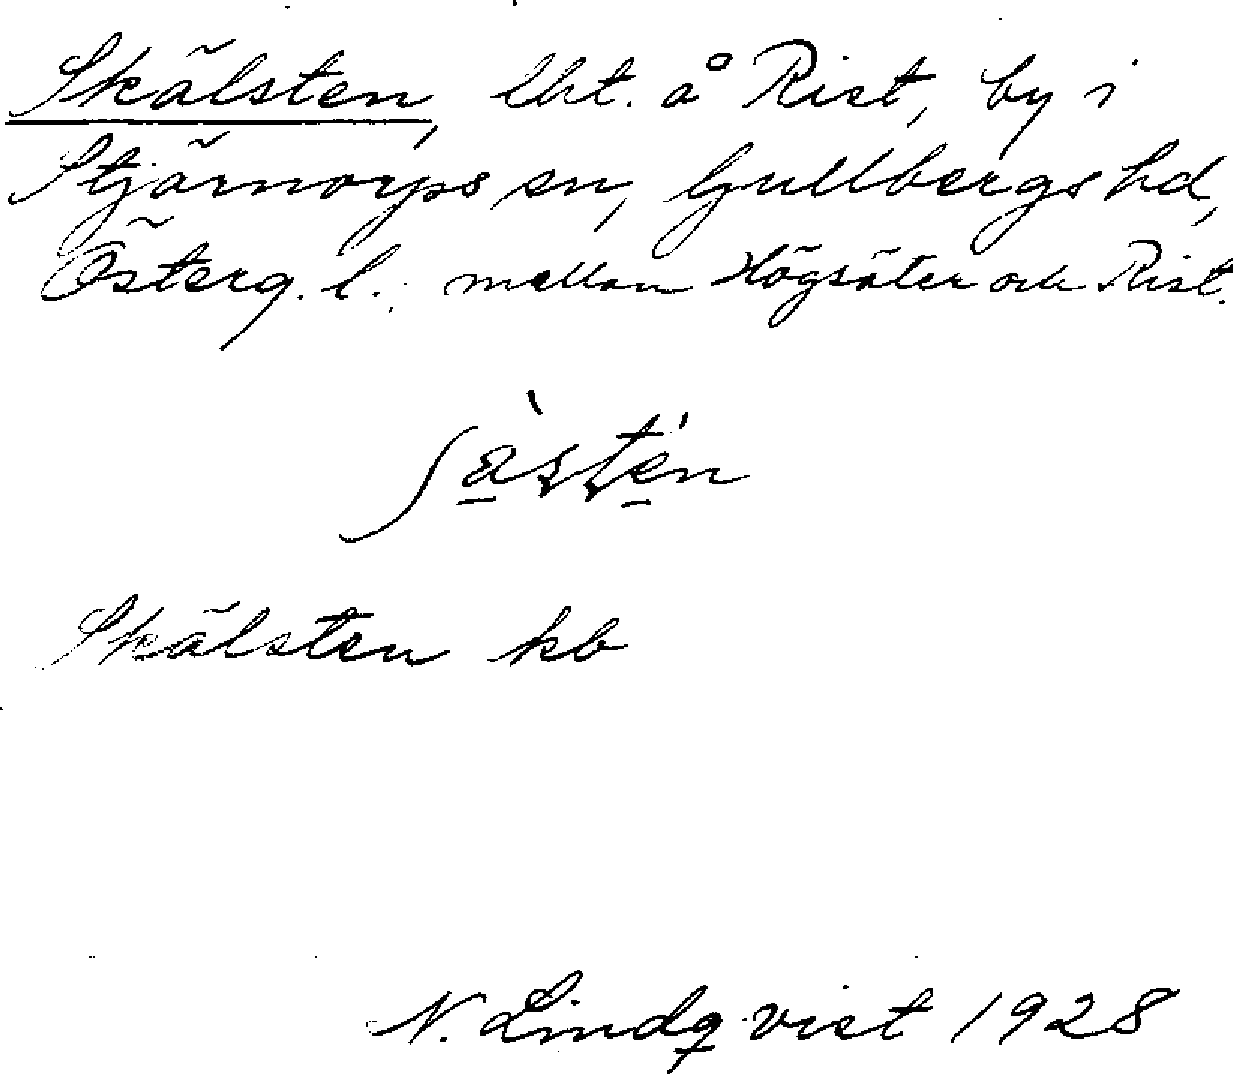 Skälsten, lht. å Rist, by i
Stjärnorps sn, Gullbergs hd,
Österg. l. mellan Högsäter och Rist.
Skälsten kb
N. Lindqvist 1928